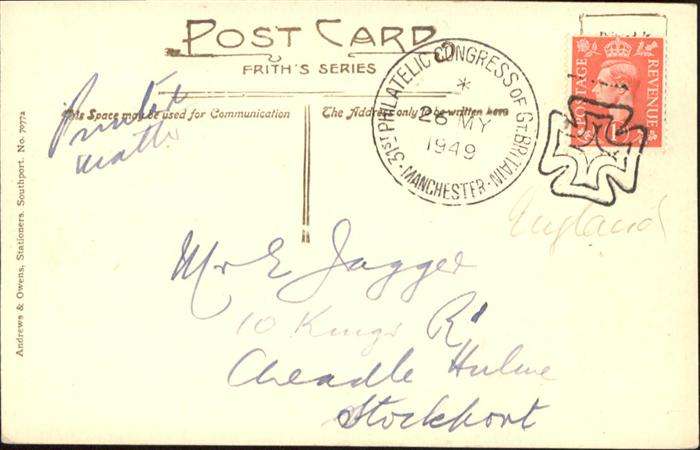 POST CARD
FRITH'S SERIES
This Space may be used for Communication
The Address only to be written here
Printed
matter
31ST PHILATELIC CONGRESS OF GT. BRITAIN
* 
28 MY
1949
· MANCHESTER ·
POSTAGE REVENUE
England
Mr E Jagger
10 Kings Rd
Cheadle Hulme
Stockport
Andrews & Owens, Stationers, Southport. No. 7077a